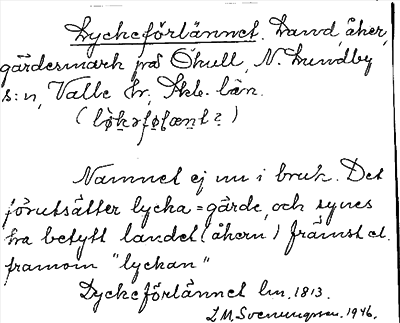 Lyckeförlännet. Land, åker,
gärdesmark på Skull, N. Lundby
s:n, Valle hr, Skb. län.
Namnet ej nu i bruk. Det
förutsätter lycka = gärde, och synes
ha betytt landet (åkern) främst el.
framom "lyckan"
Lyckeförlännet lm. 1813.
L.M. Svenungsson. 1946.